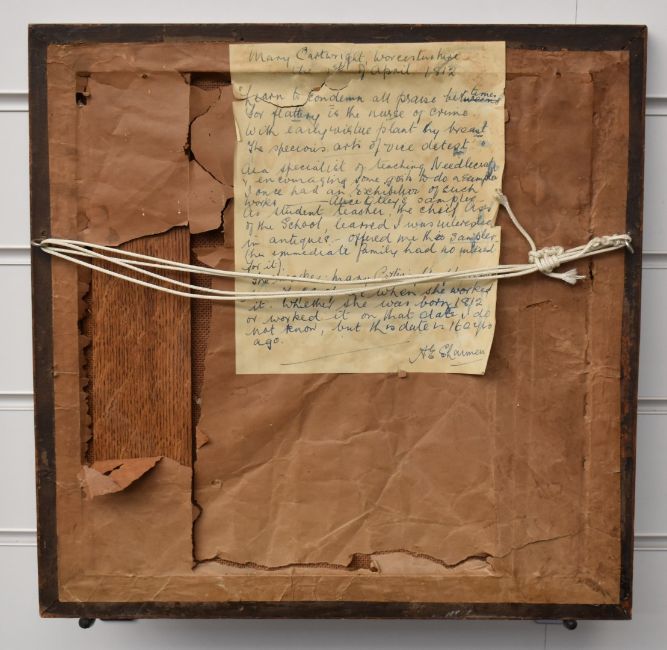 Mary Cartwright, Worcestershire
the of April 1812
Learn to condemn all praise betimes
For flattery is the nurse of crime.
With early virtue plant thy breast
The specious arts of vice detest
As a specialist of teaching Needlecraft
encouraging some girls to do a Sampler
I once had an exhibition of such
works
As student teacher, the chief Asst
of the School, learned I was interested
in antiques - offered me the Sampler
(her immediate family had no interest
for it).
Mary
when she worked
it. Whether she was born 1812
or worked it on that date I do
not know, but this date is 160 yrs
ago.